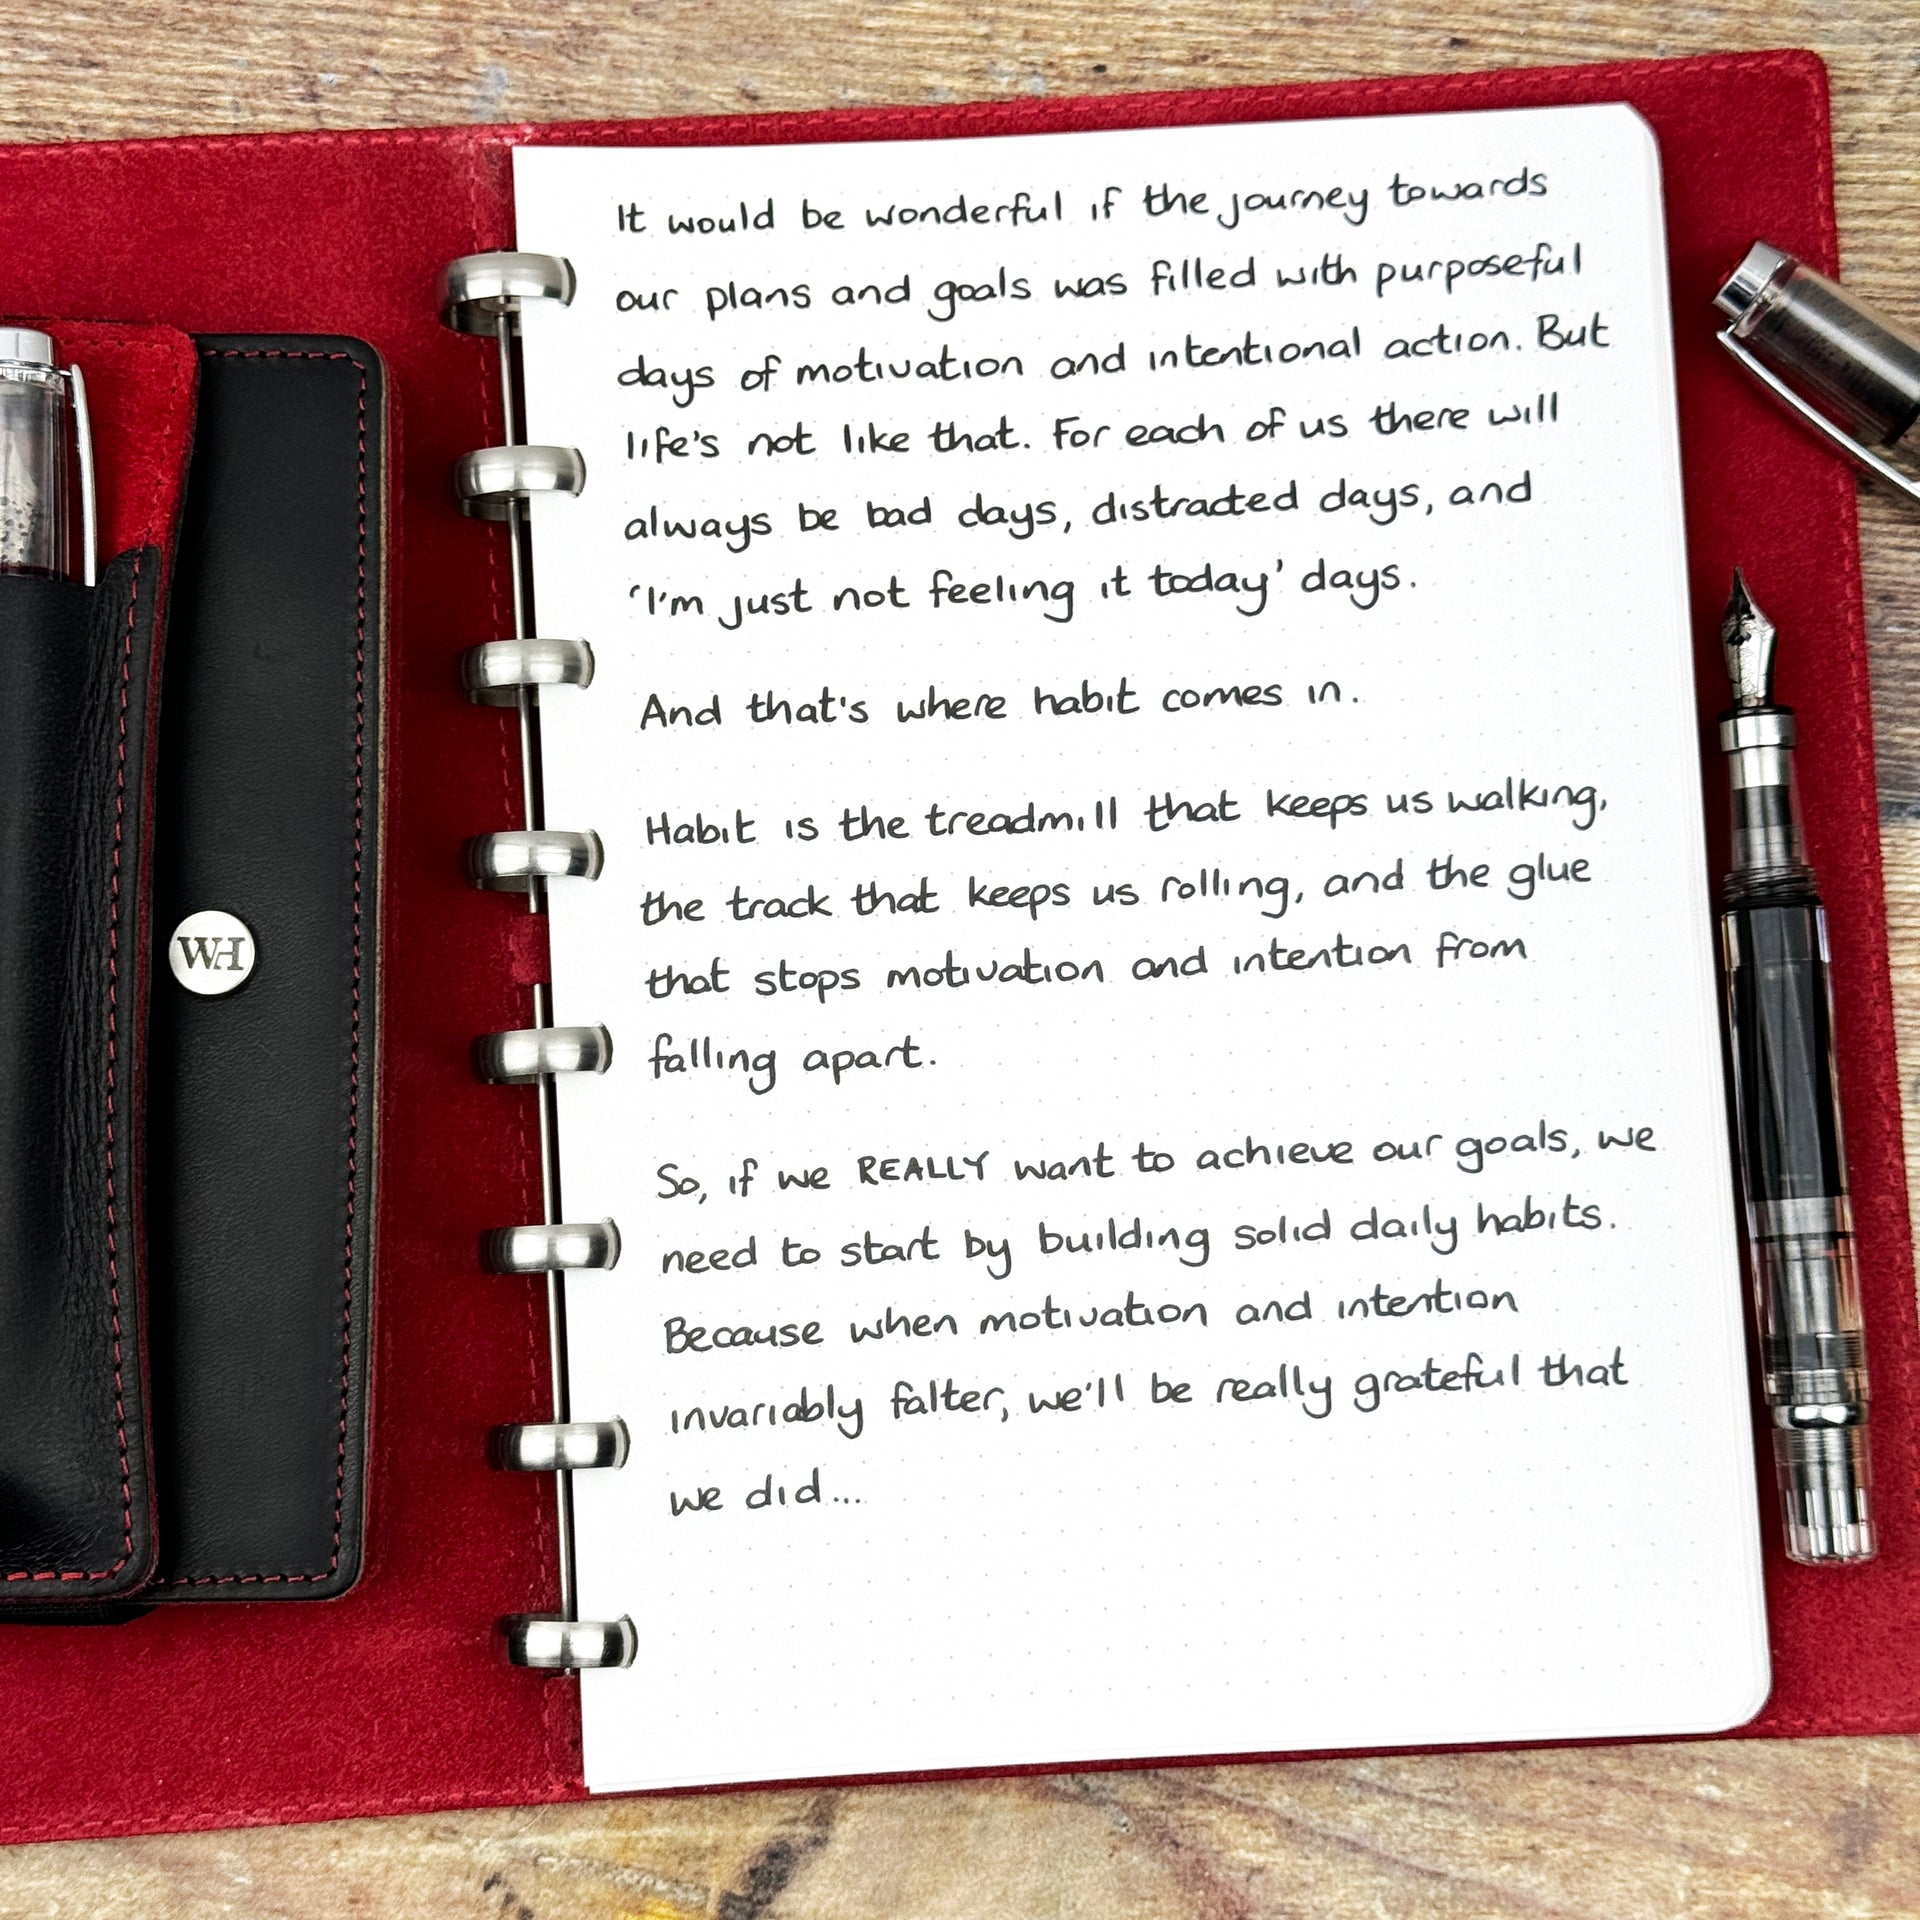 It would be wonderful if the journey towards
our plans and goals was filled with purposeful
days of motivation and intentional action. But
life's not like that. For each of us there will
always be bad days, distracted days, and
'I'm just not feeling it today' days.
And that's where habit comes in.
Habit is the treadmill that keeps us walking,
the track that keeps us rolling, and the glue
that stops motivation and intention from
falling apart.
So, if we REALLY want to achieve our goals, we
need to start by building solid daily habits.
Because when motivation and intention
invariably falter, we'll be really grateful that
we did...
WH